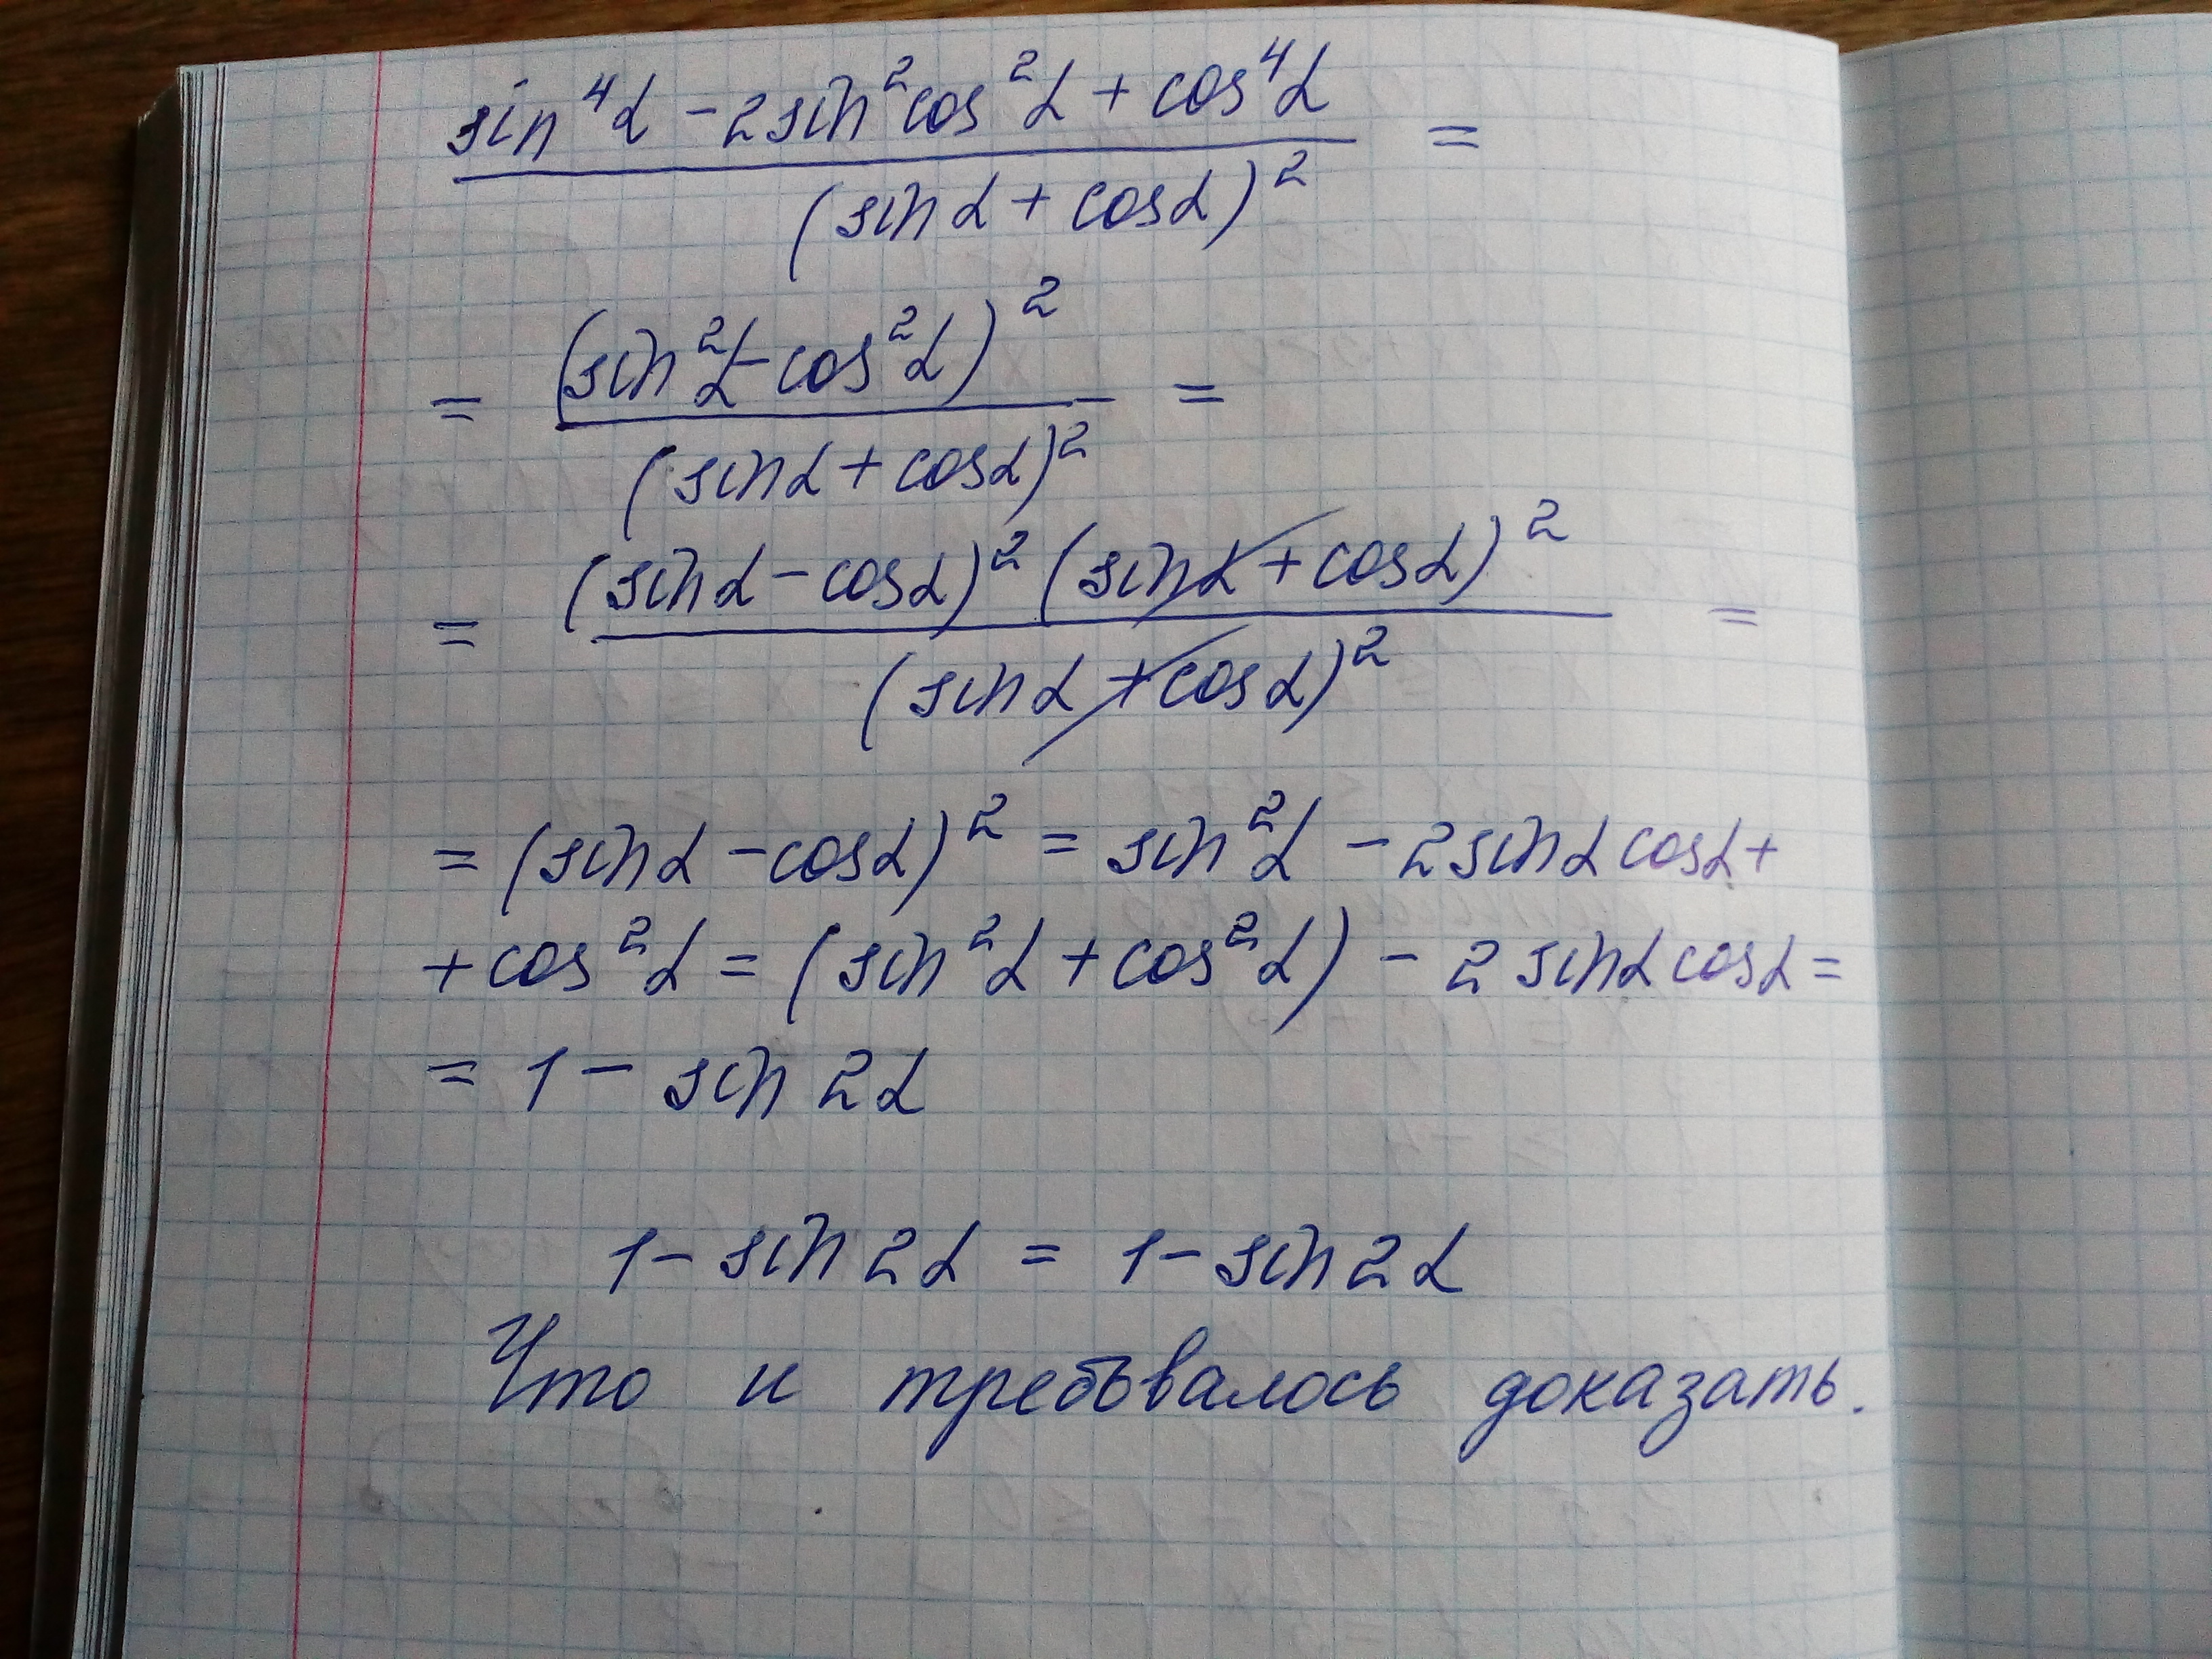 sin⁴α - 2sin²cos²α + cos⁴α =
(sinα + cosα)²
= (sin²α - cos²α)² =
(sinα + cosα)²
= (sinα - cosα)² (sinα + cosα)² =
(sinα + cosα)²
= (sinα - cosα)² = sin²α - 2sinα cosα +
+ cos²α = (sin²α + cos²α) - 2 sinα cosα =
= 1 - sin 2α
1 - sin 2α = 1 - sin 2α
Что и требывалось доказать.